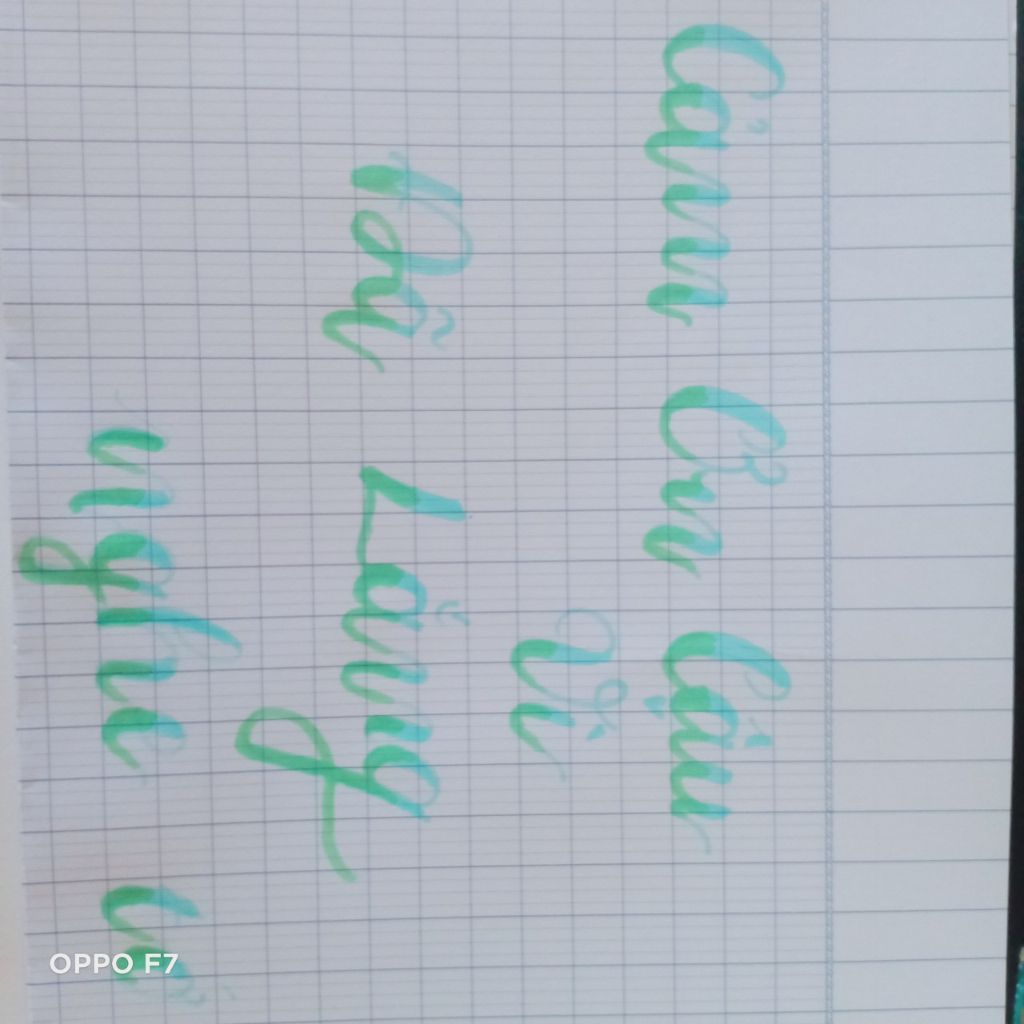 Cảm Ơn Cậu
Vì
Đã Lắng
nghe
OPPO F7